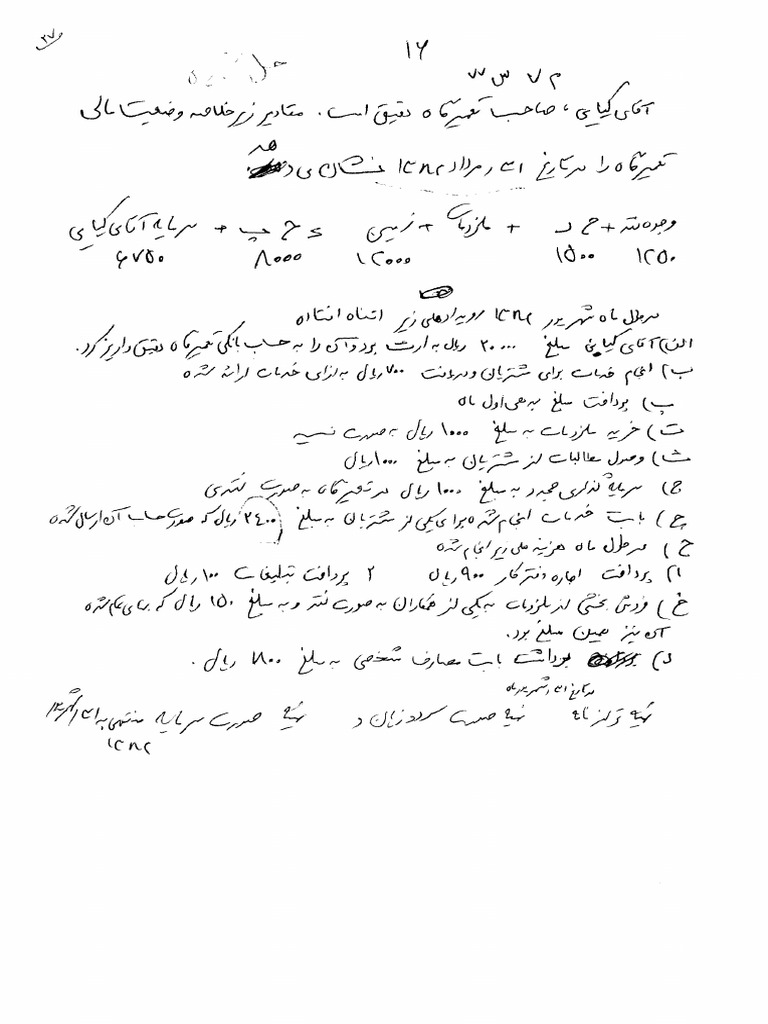 ۲۷
۱۶
م ۷ س ۳۳
آقای کیایی، صاحب تعمیرگاه دقیق است. مقادیر زیر خلاصه وضعیت مالی
تعمیرگاه را در تاریخ ۳۱ مرداد ۱۳۸۲ نشان می دهد
وجوه نقد + ح د + ملزومات + زمین = ح پ + سرمایه آقای کیایی
۱۲۵۰ ۱۵۰۰ ۱۲۰۰۰ ۸۰۰۰ ۶۷۵۰
در طول ماه شهریور ۱۳۸۲ رویدادهای زیر اتفاق افتاده
الف) آقای کیایی مبلغ ۲۰۰۰۰ ریال به ارث برد و آن را به حساب بانکی تعمیرگاه دقیق واریز کرد.
ب) انجام خدمات برای مشتریان و دریافت ۷۰۰ ریال به ازای خدمات ارائه شده
پ) پرداخت مبلغ بدهی اول ماه
ت) خرید ملزومات به مبلغ ۱۰۰۰ ریال به صورت نسیه
ث) وصول مطالبات از مشتریان به مبلغ ۱۰۰۰ ریال
ج) سرمایه گذاری مجدد به مبلغ ۱۰۰۰ ریال در تعمیرگاه به صورت نقدی
چ) بابت خدمات انجام شده برای یکی از مشتریان به مبلغ ۲۴۰۰ ریال که صورتحساب آن ارسال شده
ح) در طول ماه هزینه های زیر انجام شده
۱) پرداخت اجاره دفتر کار ۹۰۰ ریال ۲ پرداخت تبلیغات ۱۰۰ ریال
خ) فروش بخشی از ملزومات به یکی از همکاران به صورت نقد و به مبلغ ۱۵۰ ریال که بهای تمام شده
آن نیز همین مبلغ بود.
د) برداشت بابت مصارف شخصی به مبلغ ۱۸۰۰ ریال.
در تاریخ ۳۱ شهریور ماه
تهیه ترازنامه تهیه صورت سود و زیان و تهیه صورت سرمایه منتهی به ۳۱ شهریور
۱۳۸۲